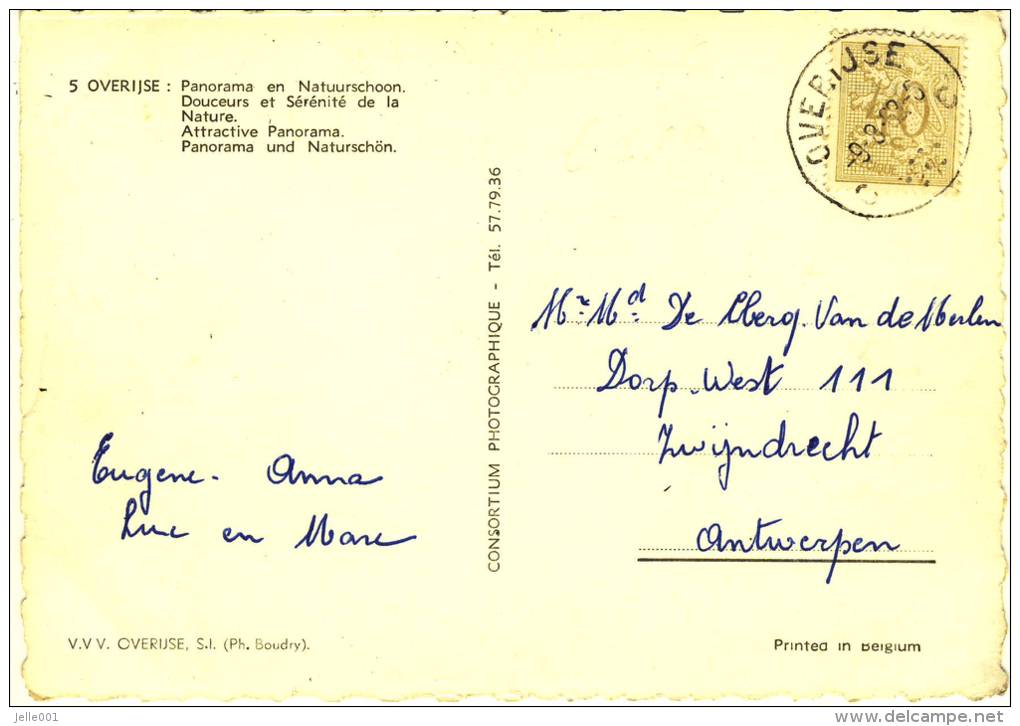 5 OVERIJSE : Panorama en Natuurschoon.
Douceurs et Sérénité de la
Nature.
Attractive Panorama.
Panorama und Naturschön.
OVERIJSE
40
CONSORTIUM PHOTOGRAPHIQUE - Tél. 57.79.36
Mr. Md. De Cberg. Van de Merlen
Dorp-West 111
Zwijndrecht
Antwerpen
Eugene - Anna
Luc en Marc
V.V V. OVERIJSE, S.I. (Ph. Boudry).
Printed in Belgium
jelle001
www.delcampe.net